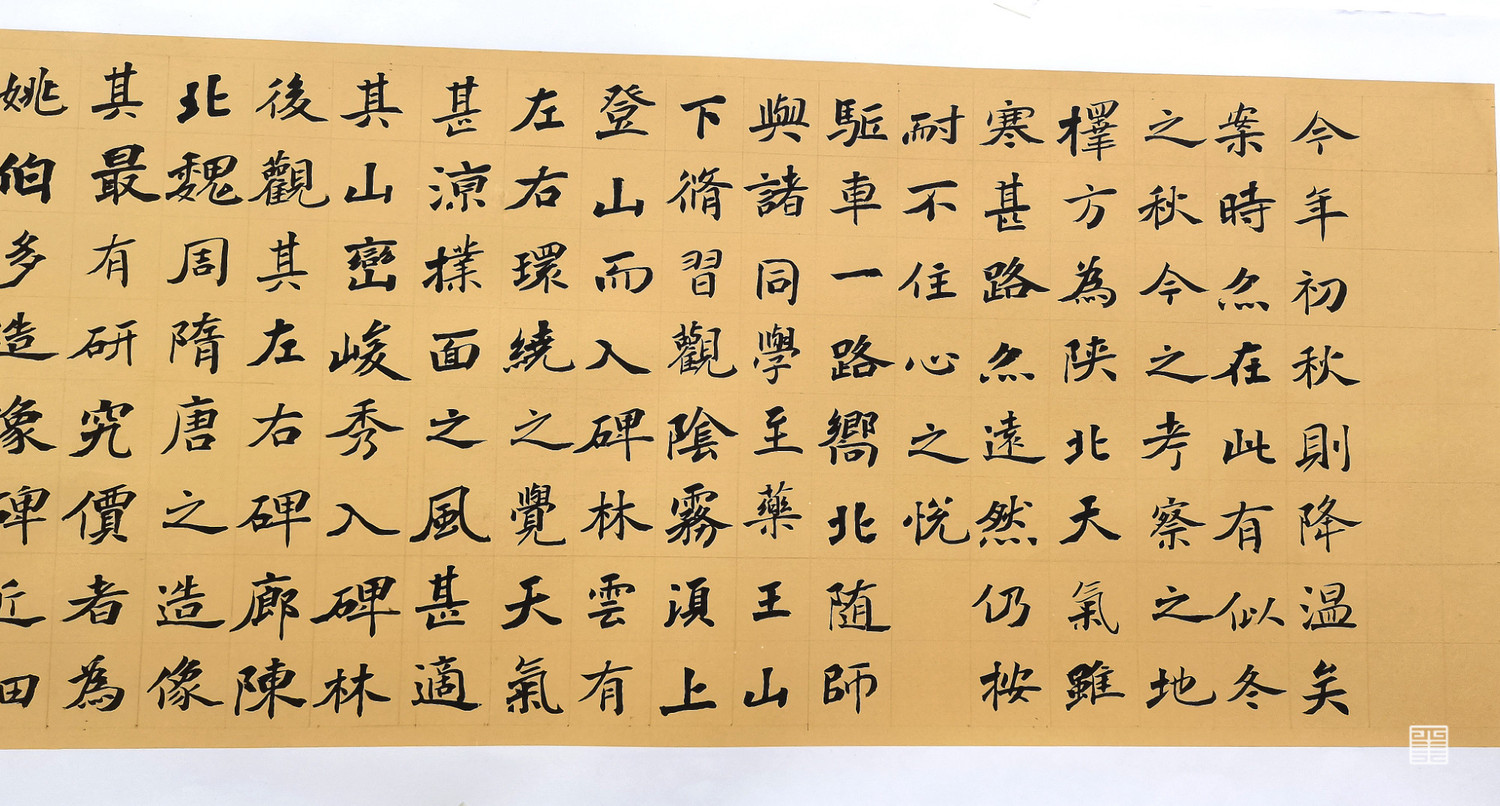 今年初秋則降温矣
案時亦在此有似冬
之秋今之考察之地
擇方為陝北天氣雖
寒甚路亦遠然仍按
耐不住心之悦
駈車一路嚮北随師
與諸同學至藥王山
下脩習觀陰霧湏上
登山而入碑林雲有
左右環繞之覺天氣
甚涼撲面之風甚適
其山巒峻秀入碑林
後觀其左右碑廊陳
北魏周隋唐之造像
其最有研究價者為
姚伯多造像碑近田